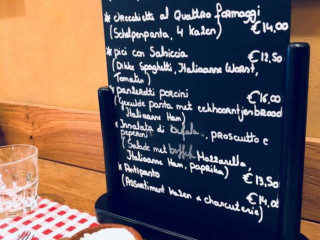 * orecchietti al Quattro formaggi
(Schelpenpasta, 4 kazen) €14,00
* pici con Salsiccia
(Dikke Spaghetti, Italiaanse Worst, €12,50
Tomaten)
* panzerotti porcini €16,00
(Gevulde pasta met eekhoorntjesbrood
Italiaanse Ham)
* Insalata di bufala, prosciutto e
peperoni
(Salade met buffel Mozzarella,
Italiaanse Ham, paprika) €13,50
* Antipasto €14,00
(Assortiment kazen & charcuterie)